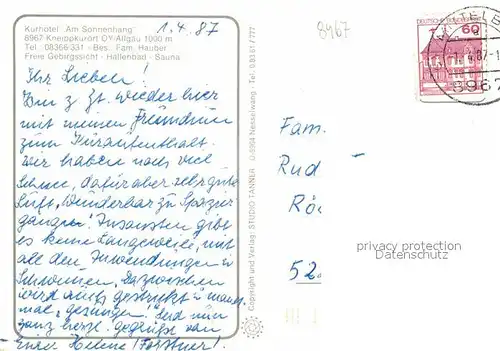 Kurhotel "Am Sonnenhang"
8967 Kneippkurort OY-Allgäu 1000 m
Tel.: 08366:331 - Bes. Fam. Hauber
Freie Gebirgssicht - Hallenbad - Sauna
1.4.87
8967
DEUTSCHE BUNDESPOST
60
8967
Ihr Lieben!
Bin z. Zt. wieder hier
mit meinen Freundin
zum Kuraufenthalt.
Wir haben noch viel
Schnee, dafür aber sehr gute
Luft, wunderbar zu Spazier
gängen! Ansonsten gibt
es keine Langeweile, mit
all den Anwendungen u.
Schwimmen. Dazwischen
wird auch gestrickt u. manch
mal gesungen! Seid nun
ganz herzl. gegrüßt von
Eurer Helene
Copyright und Verlag STUDIO TANNER D-8964 Nesselwang - Tel. 08361/777
Fam.
Rud
privacy protection
52